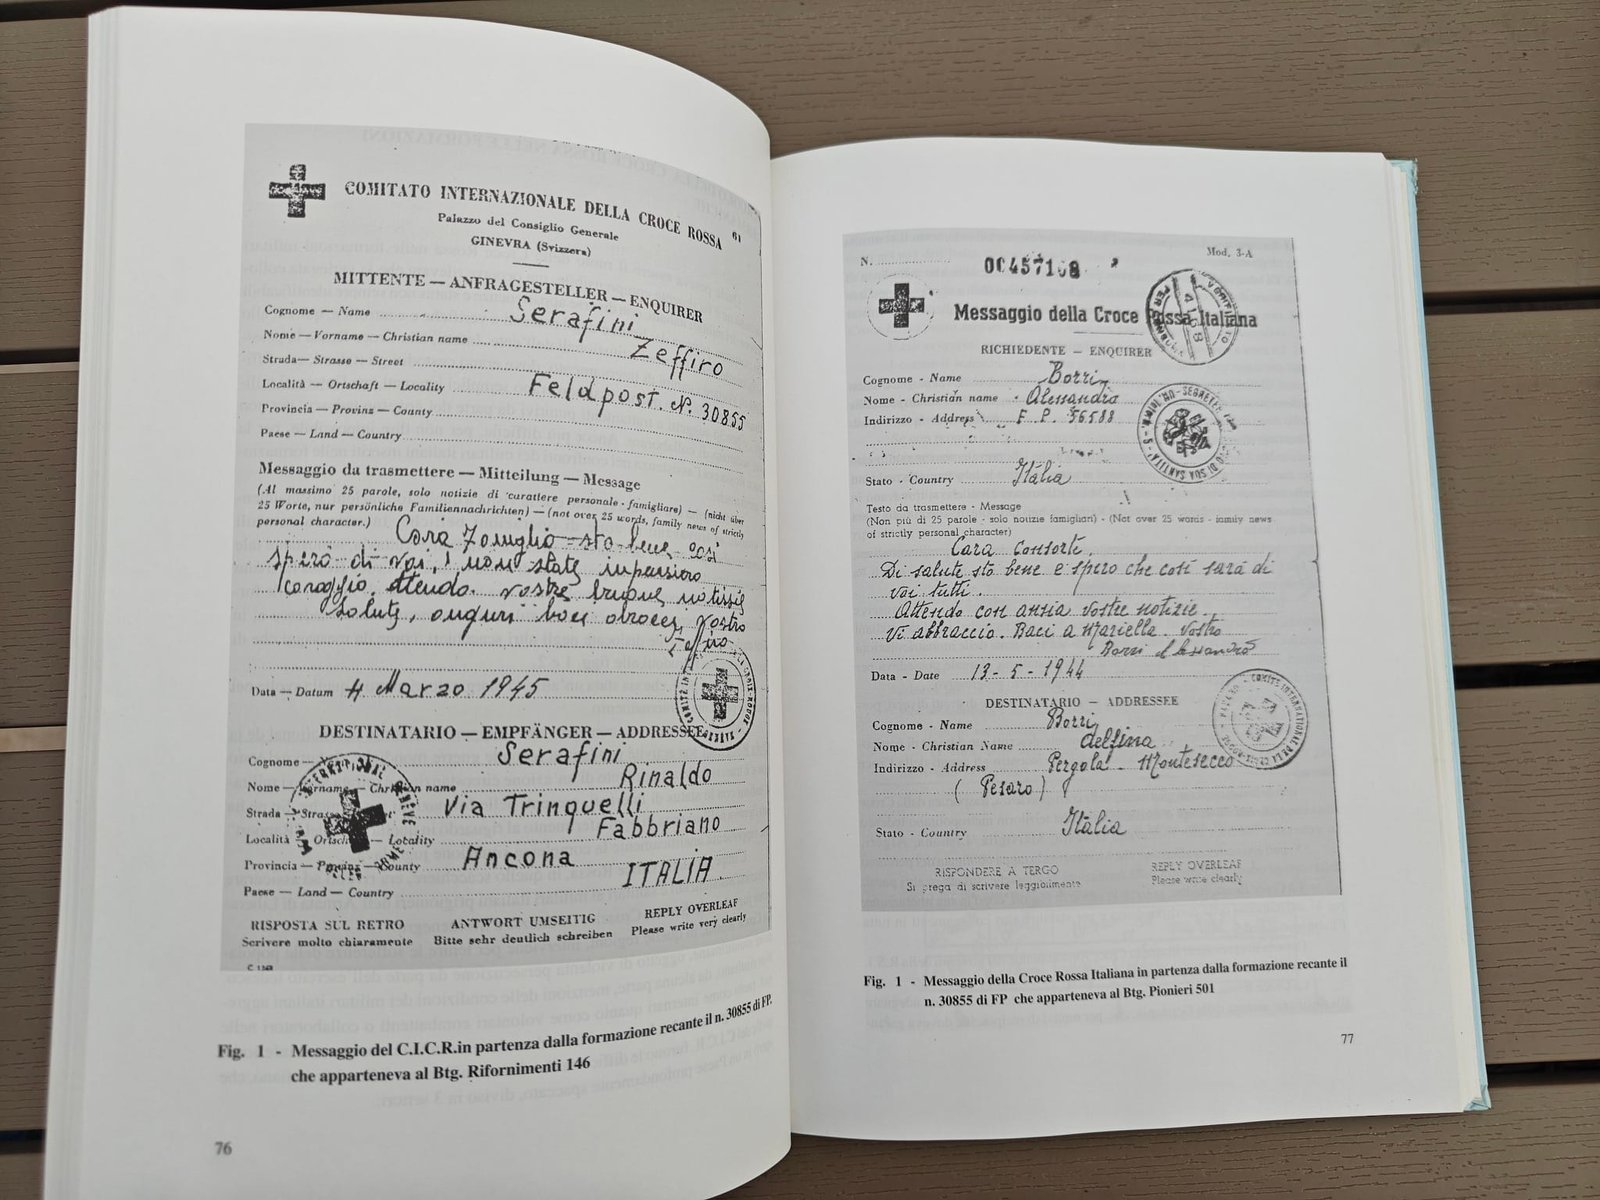 COMITATO INTERNAZIONALE DELLA CROCE ROSSA 61
Palazzo del Consiglio Generale
GINEVRA (Svizzera)
MITTENTE — ANFRAGESTELLER — ENQUIRER
Cognome — Name Serafini
Nome — Vorname — Christian name Zeffiro
Strada — Strasse — Street
Località — Ortschaft — Locality Feldpost. N. 30855
Provincia — Provins — County
Paese — Land — Country
Messaggio da trasmettere — Mitteilung — Message
(Al massimo 25 parole, solo notizie di carattere personale - famigliare) — (nicht über
25 Worte, nur persönliche Familiennachrichten) — (not over 25 words, family news of strictly
personal character.)
Cara Famiglia = sto bene così
spero di voi, non state in pensiero
Coraggio. Attendo vostre buone notizie
Salute, auguri baci abracci, vostro
Zeffiro
Data — Datum 4 Marzo 1945
DESTINATARIO — EMPFÄNGER — ADDRESSEE
Cognome — Serafini
Nome — Vorname — Christian name Rinaldo
Strada — Strasse Via Trinquelli
Località — Ortschaft — Locality Fabbriano
Provincia — Provins — County Ancona
Paese — Land — Country ITALIA
RISPOSTA SUL RETRO ANTWORT UMSEITIG REPLY OVERLEAF
Scrivere molto chiaramente Bitte sehr deutlich schreiben Please write very clearly
Fig. 1 - Messaggio del C.I.C.R.in partenza dalla formazione recante il n. 30855 di FP.
che apparteneva al Btg. Rifornimenti 146
76
N. Mod. 3-A
Messaggio della Croce Rossa Italiana
RICHIEDENTE — ENQUIRER
Cognome - Name Borri
Nome - Christian name Alessandro
Indirizzo - Address F. P. 56588
Stato - Country Itàlia
Testo da trasmettere - Message
(Non più di 25 parole - solo notizie famigliari) - (Not over 25 words - family news
of strictly personal character)
Cara Consorte.
Di salute sto bene e spiro che così sarà di
voi tutti.
Attendo con ansia vostre notizie.
Vi abbraccio. Baci a Mariella. Vostro
Borri Alessandro
Data - Date 13 - 5 - 1944
DESTINATARIO - ADDRESSEE
Cognome - Name Borri
Nome - Christian Name delfina
Indirizzo - Address Pergola - Montesecco
( Pesaro )
Stato - Country Itàlia
RISPONDERE A TERGO REPLY OVERLEAF
Si prega di scrivere leggibilmente Please write clearly
Fig. 1 - Messaggio della Croce Rossa Italiana in partenza dalla formazione recante il
n. 30855 di FP che apparteneva al Btg. Pionieri 501
77